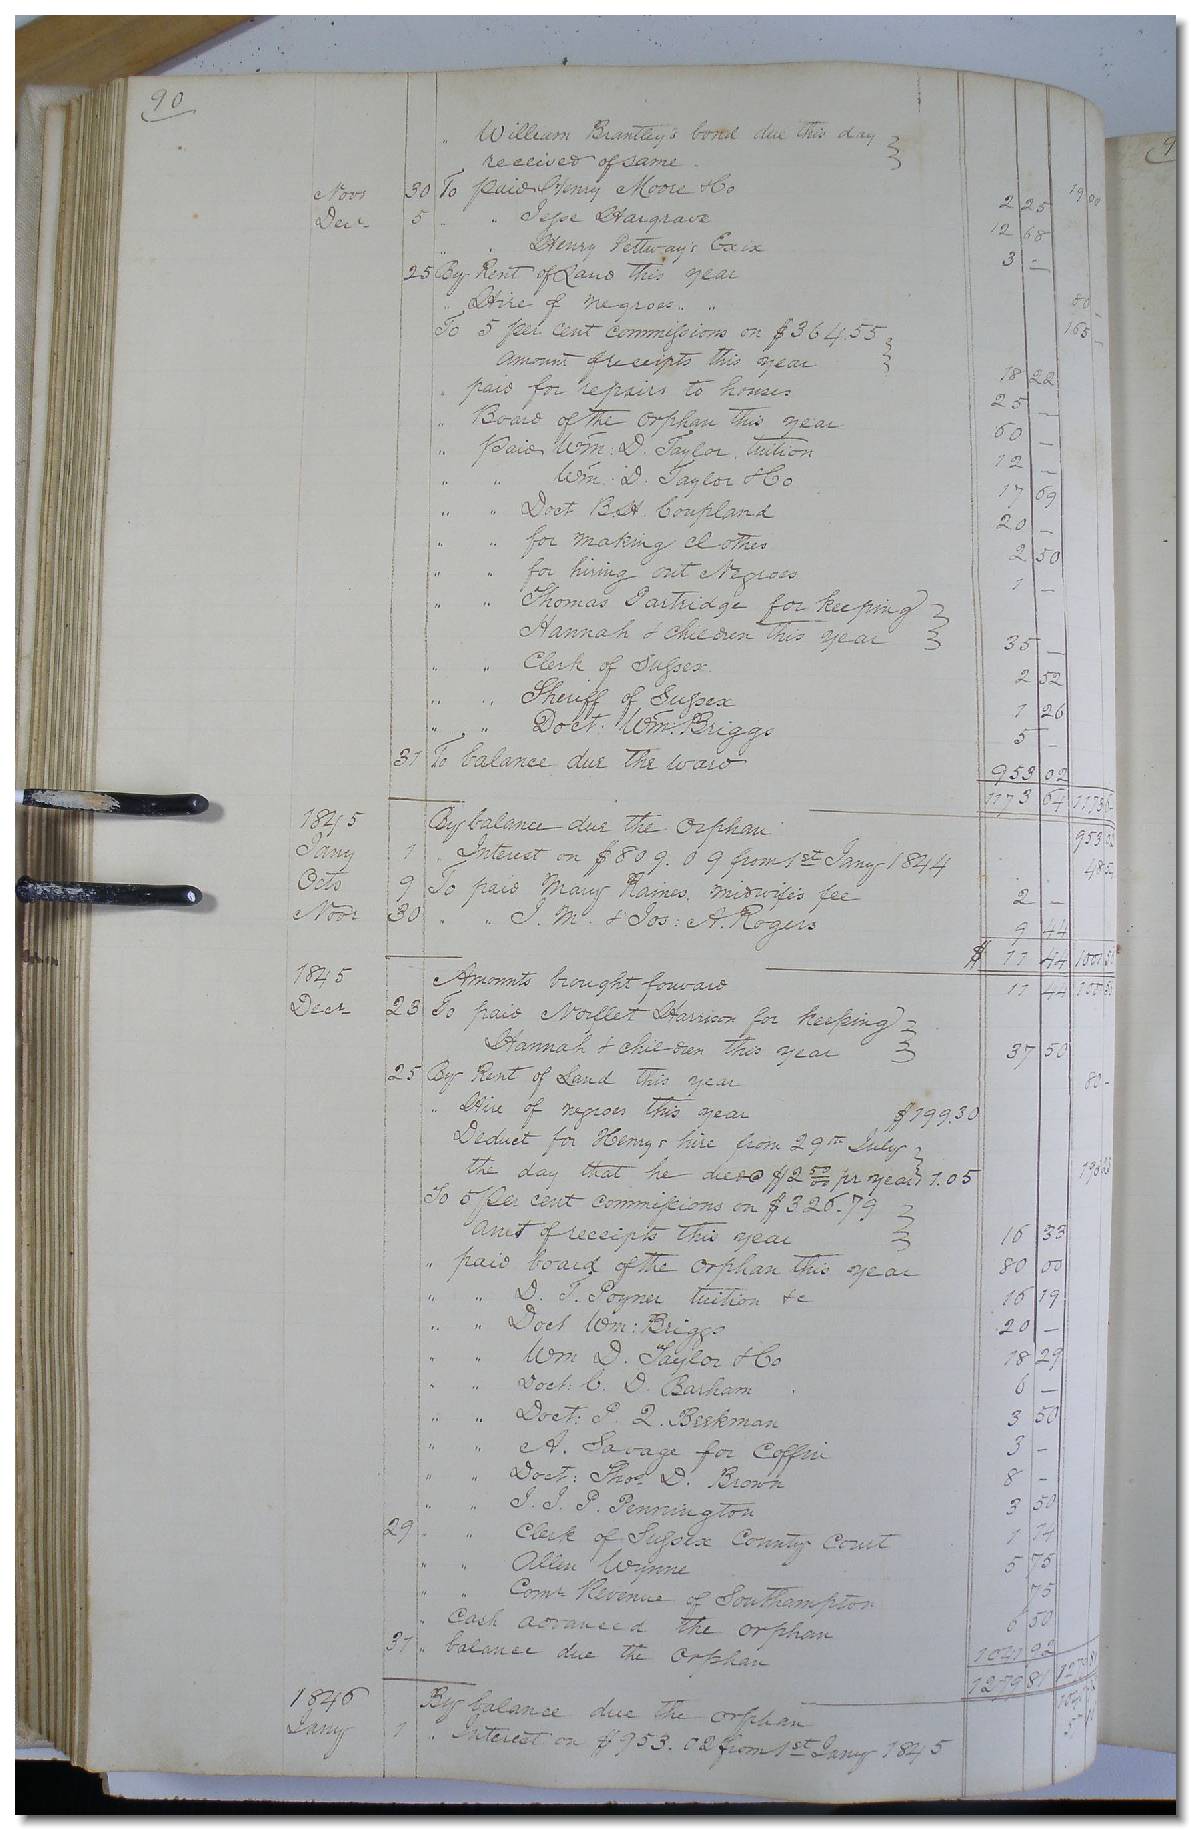 90
" William Brantley's bond due this day
received of same. 19 00
Novr 30 To paid Henry Moore & Co 2 25
Decr 5 " " Jesse Hargrave 12 68
" " Henry Pettway's Exix 3 —
25 By Rent of Land this year 80 —
" Hire of negroes " " 165 —
To 5 per cent commissions on $364.55
amount of receipts this year 18 22
" paid for repairs to houses 25 —
" Board of the orphan this year 60 —
" Paid Wm: D. Taylor, tuition 12 —
" " Wm: D. Taylor & Co 17 69
" " Doct B.H. Coupland 20 —
" " for making clothes 2 50
" " for hiring out Negroes 1 —
" " Thomas Partridge for keeping
Hannah & children this year 35 —
" " Clerk of Sussex 2 52
" " Sheriff of Sussex 1 26
" " Doct. Wm. Briggs 5 —
31 To balance due the ward 953 02
1173 64 1173 6
1845 By balance due the orphan 953 02
Jany 1 " Interest on $809.09 from 1st Jany 1844 48 5
Octo 9 To paid Mary Raines, midwife's fee 2 —
Novr 30 " " J. M. & Jos: A. Rogers 9 44
$ 11 44 1001 5
1845 Amounts brought forward 11 44 1001 5
Decr 23 To paid Norflet Harrison for keeping
Hannah & children this year 37 50
25 By Rent of Land this year 80 -
" Hire of negroes this year $199.30
Deduct for Henry's hire from 29th July
the day that he died @ $2 50/00 pr year 1.05 198 25
To 5 per cent commissions on $326.79
amt of receipts this year 16 33
" paid board of the orphan this year 80 00
" " D. T. Poyner tuition &c 16 19
" " Doct Wm: Briggs 20 —
" " Wm D. Taylor & Co 18 29
" " Doct: C. D. Barham 6 —
" " Doct: P. Q. Beekman 3 50
" " A. Savage for Coffin 3 -
" " Doct: Thos. D. Brown 8 -
" " J. J. P. Pennington 3 50
29 " " Clerk of Sussex County Court 1 74
" " Allen Wynne 5 75
" " Comr Revenue of Southampton 75
" Cash advanced the orphan 6 50
31 " balance due the orphan 1041 92
1279 81 1279 81
1846 By balance due the orphan
Jany 1 " Interest on $953.02 from 1st Jany 1845